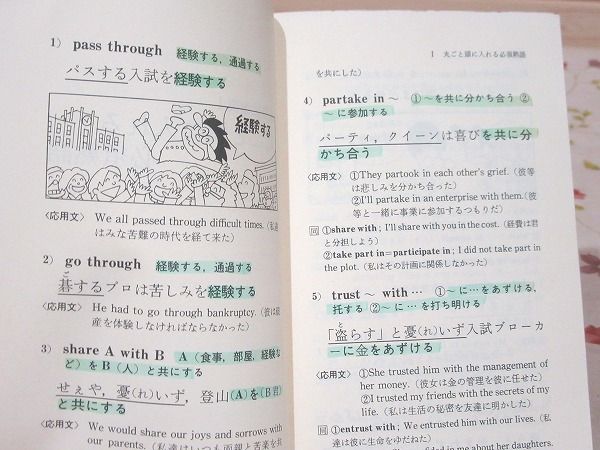 1) pass through 経験する，通過する
パスする入試を経験する
経験する
〈応用文〉 We all passed through difficult times. (私達
はみな苦難の時代を経て来た)
2) go through 経験する，通過する
碁するプロは苦しみを経験する
ご
〈応用文〉 He had to go through bankruptcy. (彼は破
産を体験しなければならなかった)
3) share A with B A (食事，部屋，経験な
ど) をB (人) と共にする
せぇや，憂(れ)いず，登山(A)を(B君)
と共にする
〈応用文〉 We would share our joys and sorrows with
our parents. (私達はいつも両親と苦楽を共
I 丸ごと頭に入れる必須熟語
を共にした)
4) partake in ～ ①～を共に分かち合う ②
～に参加する
パーティ，クイーンは喜びを共に分
かち合う
〈応用文〉 ①They partook in each other's grief. (彼等
は悲しみを分かち合った)
②I'll partake in an enterprise with them. (彼
等と一緒に事業に参加するつもりだ)
同 ①share with ; I'll share with you in the cost. (経費は君
と分担しよう)
②take part in＝participate in ; I did not take part in
the plot. (私はその計画に関係しなかった)
5) trust ～ with … ①～に…をあずける，
托する ②～に…を打ち明ける
「盗らす」と憂(れ)いず入試ブローカ
と
ーに金をあずける
〈応用文〉 ①She trusted him with the management of
her money. (彼女は金の管理を彼に任せた)
②I trusted my friends with the secrets of my
life. (私は生活の秘密を友達に明かした)
同 ①entrust with ; We entrusted him with our lives. (私
達は彼に生命をゆだねた)
in me about her daughters.